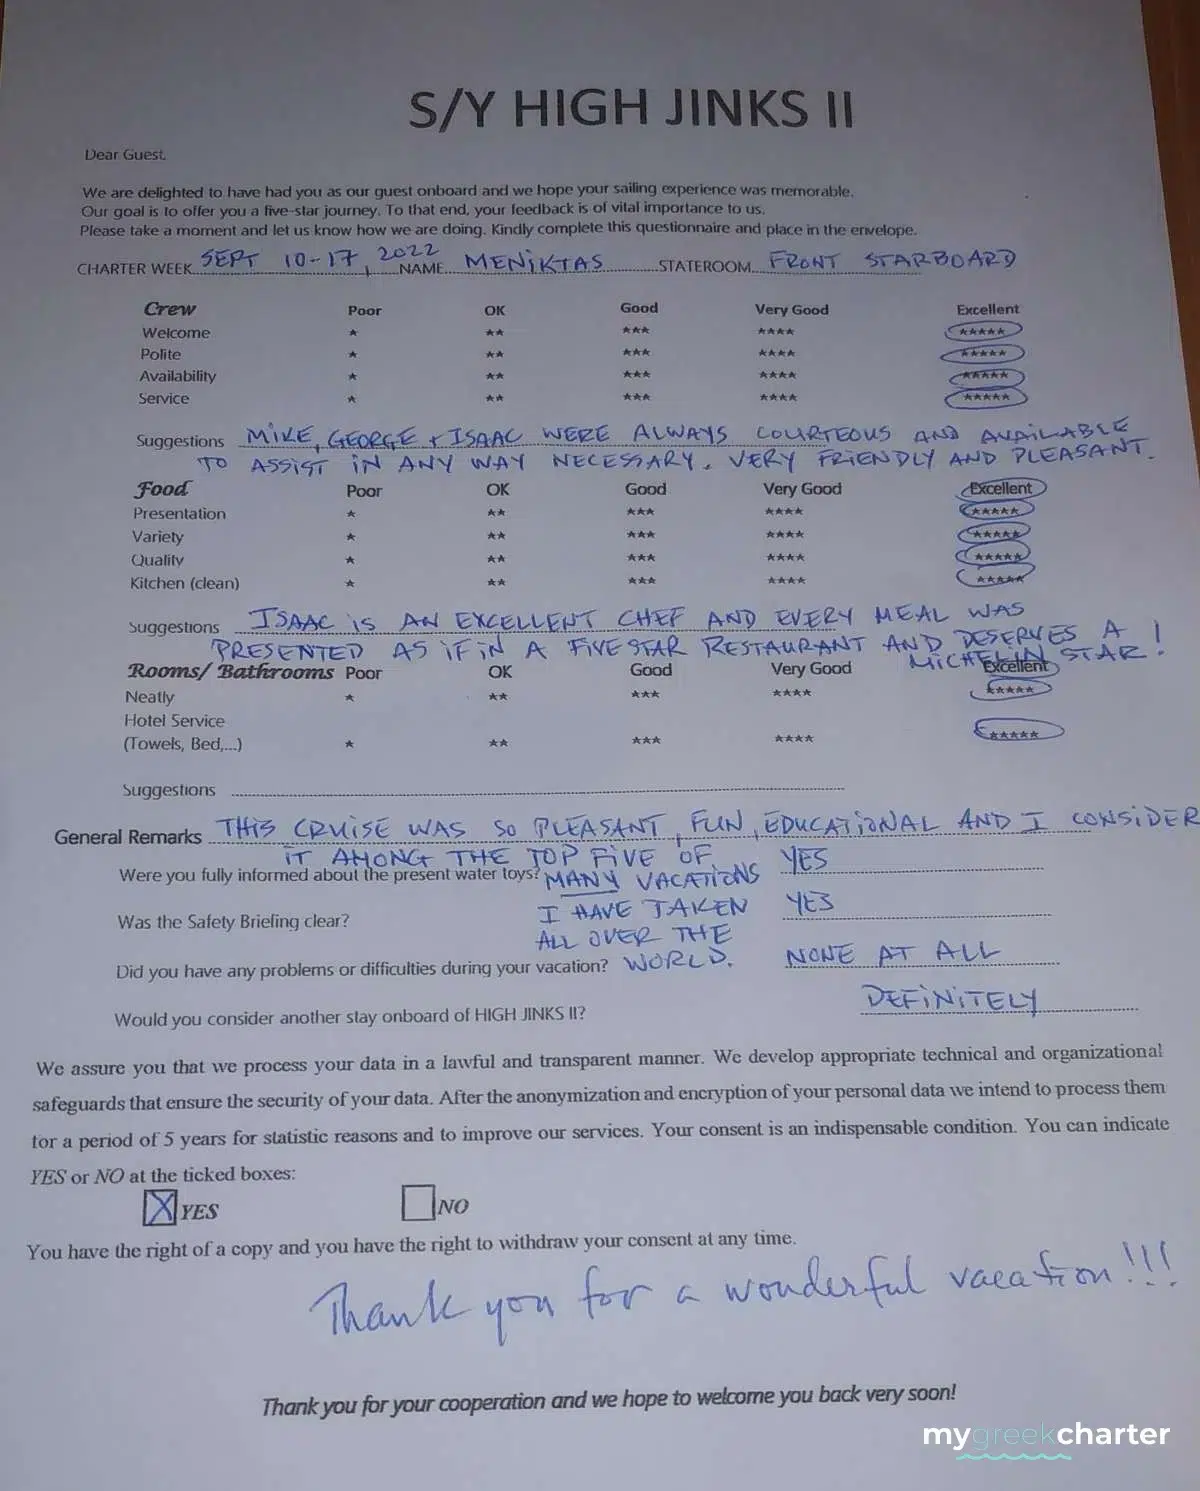 S/Y HIGH JINKS II
Dear Guest,
We are delighted to have had you as our guest onboard and we hope your sailing experience was memorable.
Our goal is to offer you a five-star journey. To that end, your feedback is of vital importance to us.
Please take a moment and let us know how we are doing. Kindly complete this questionnaire and place in the envelope.
CHARTER WEEK SEPT 10-17, 2022 NAME MENIKTAS STATEROOM FRONT STARBOARD
Crew Poor OK Good Very Good Excellent
Welcome * ** *** **** *****
Polite * ** *** **** *****
Availability * ** *** **** *****
Service * ** *** **** *****
Suggestions MIKE, GEORGE + ISAAC WERE ALWAYS COURTEOUS AND AVAILABLE
TO ASSIST IN ANY WAY NECESSARY. VERY FRIENDLY AND PLEASANT.
Food Poor OK Good Very Good Excellent
Presentation * ** *** **** *****
Variety * ** *** **** *****
Quality * ** *** **** *****
Kitchen (clean) * ** *** **** *****
Suggestions ISAAC IS AN EXCELLENT CHEF AND EVERY MEAL WAS
PRESENTED AS IF IN A FIVE STAR RESTAURANT AND DESERVES A
MICHELIN STAR!
Rooms/ Bathrooms Poor OK Good Very Good Excellent
Neatly * ** *** **** *****
Hotel Service
(Towels, Bed,...) * ** *** **** *****
Suggestions
General Remarks THIS CRUISE WAS SO PLEASANT, FUN, EDUCATIONAL AND I CONSIDER
IT AMONG THE TOP FIVE OF
Were you fully informed about the present water toys? MANY VACATIONS YES
I HAVE TAKEN
Was the Safety Briefing clear? YES
ALL OVER THE
Did you have any problems or difficulties during your vacation? WORLD. NONE AT ALL
Would you consider another stay onboard of HIGH JINKS II? DEFINITELY
We assure you that we process your data in a lawful and transparent manner. We develop appropriate technical and organizational
safeguards that ensure the security of your data. After the anonymization and encryption of your personal data we intend to process them
for a period of 5 years for statistic reasons and to improve our services. Your consent is an indispensable condition. You can indicate
YES or NO at the ticked boxes:
X YES NO
You have the right of a copy and you have the right to withdraw your consent at any time.
Thank you for a wonderful vacation!!!
Thank you for your cooperation and we hope to welcome you back very soon!
mygreekcharter